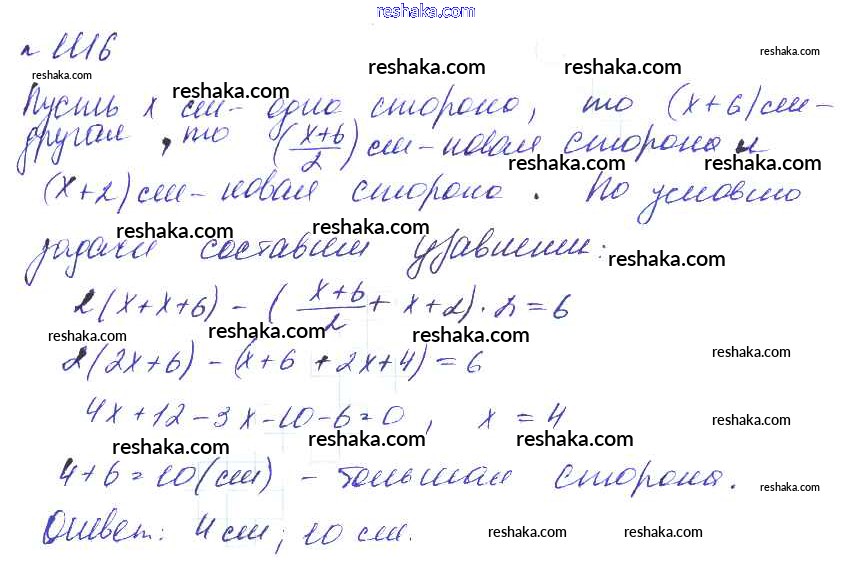 reshaka.com
№ 1116
reshaka.com reshaka.com reshaka.com reshaka.com
Пусть x см - одна сторона, то (x+6) см -
другая, то (x+6/2) см - новая сторона и
reshaka.com reshaka.com reshaka.com reshaka.com
(x+2) см - новая сторона. По условию
reshaka.com reshaka.com
задачи составим уравнение:
reshaka.com
2(x+x+6) - (x+6/2 + x+2)·2=6
reshaka.com reshaka.com reshaka.com reshaka.com
2(2x+6) - (x+6+2x+4)=6
reshaka.com
4x+12-3x-10-6=0, x=4
reshaka.com
reshaka.com reshaka.com reshaka.com
4+6=10(см) - большая сторона.
reshaka.com
Ответ: 4 см; 10 см.
reshaka.com reshaka.com